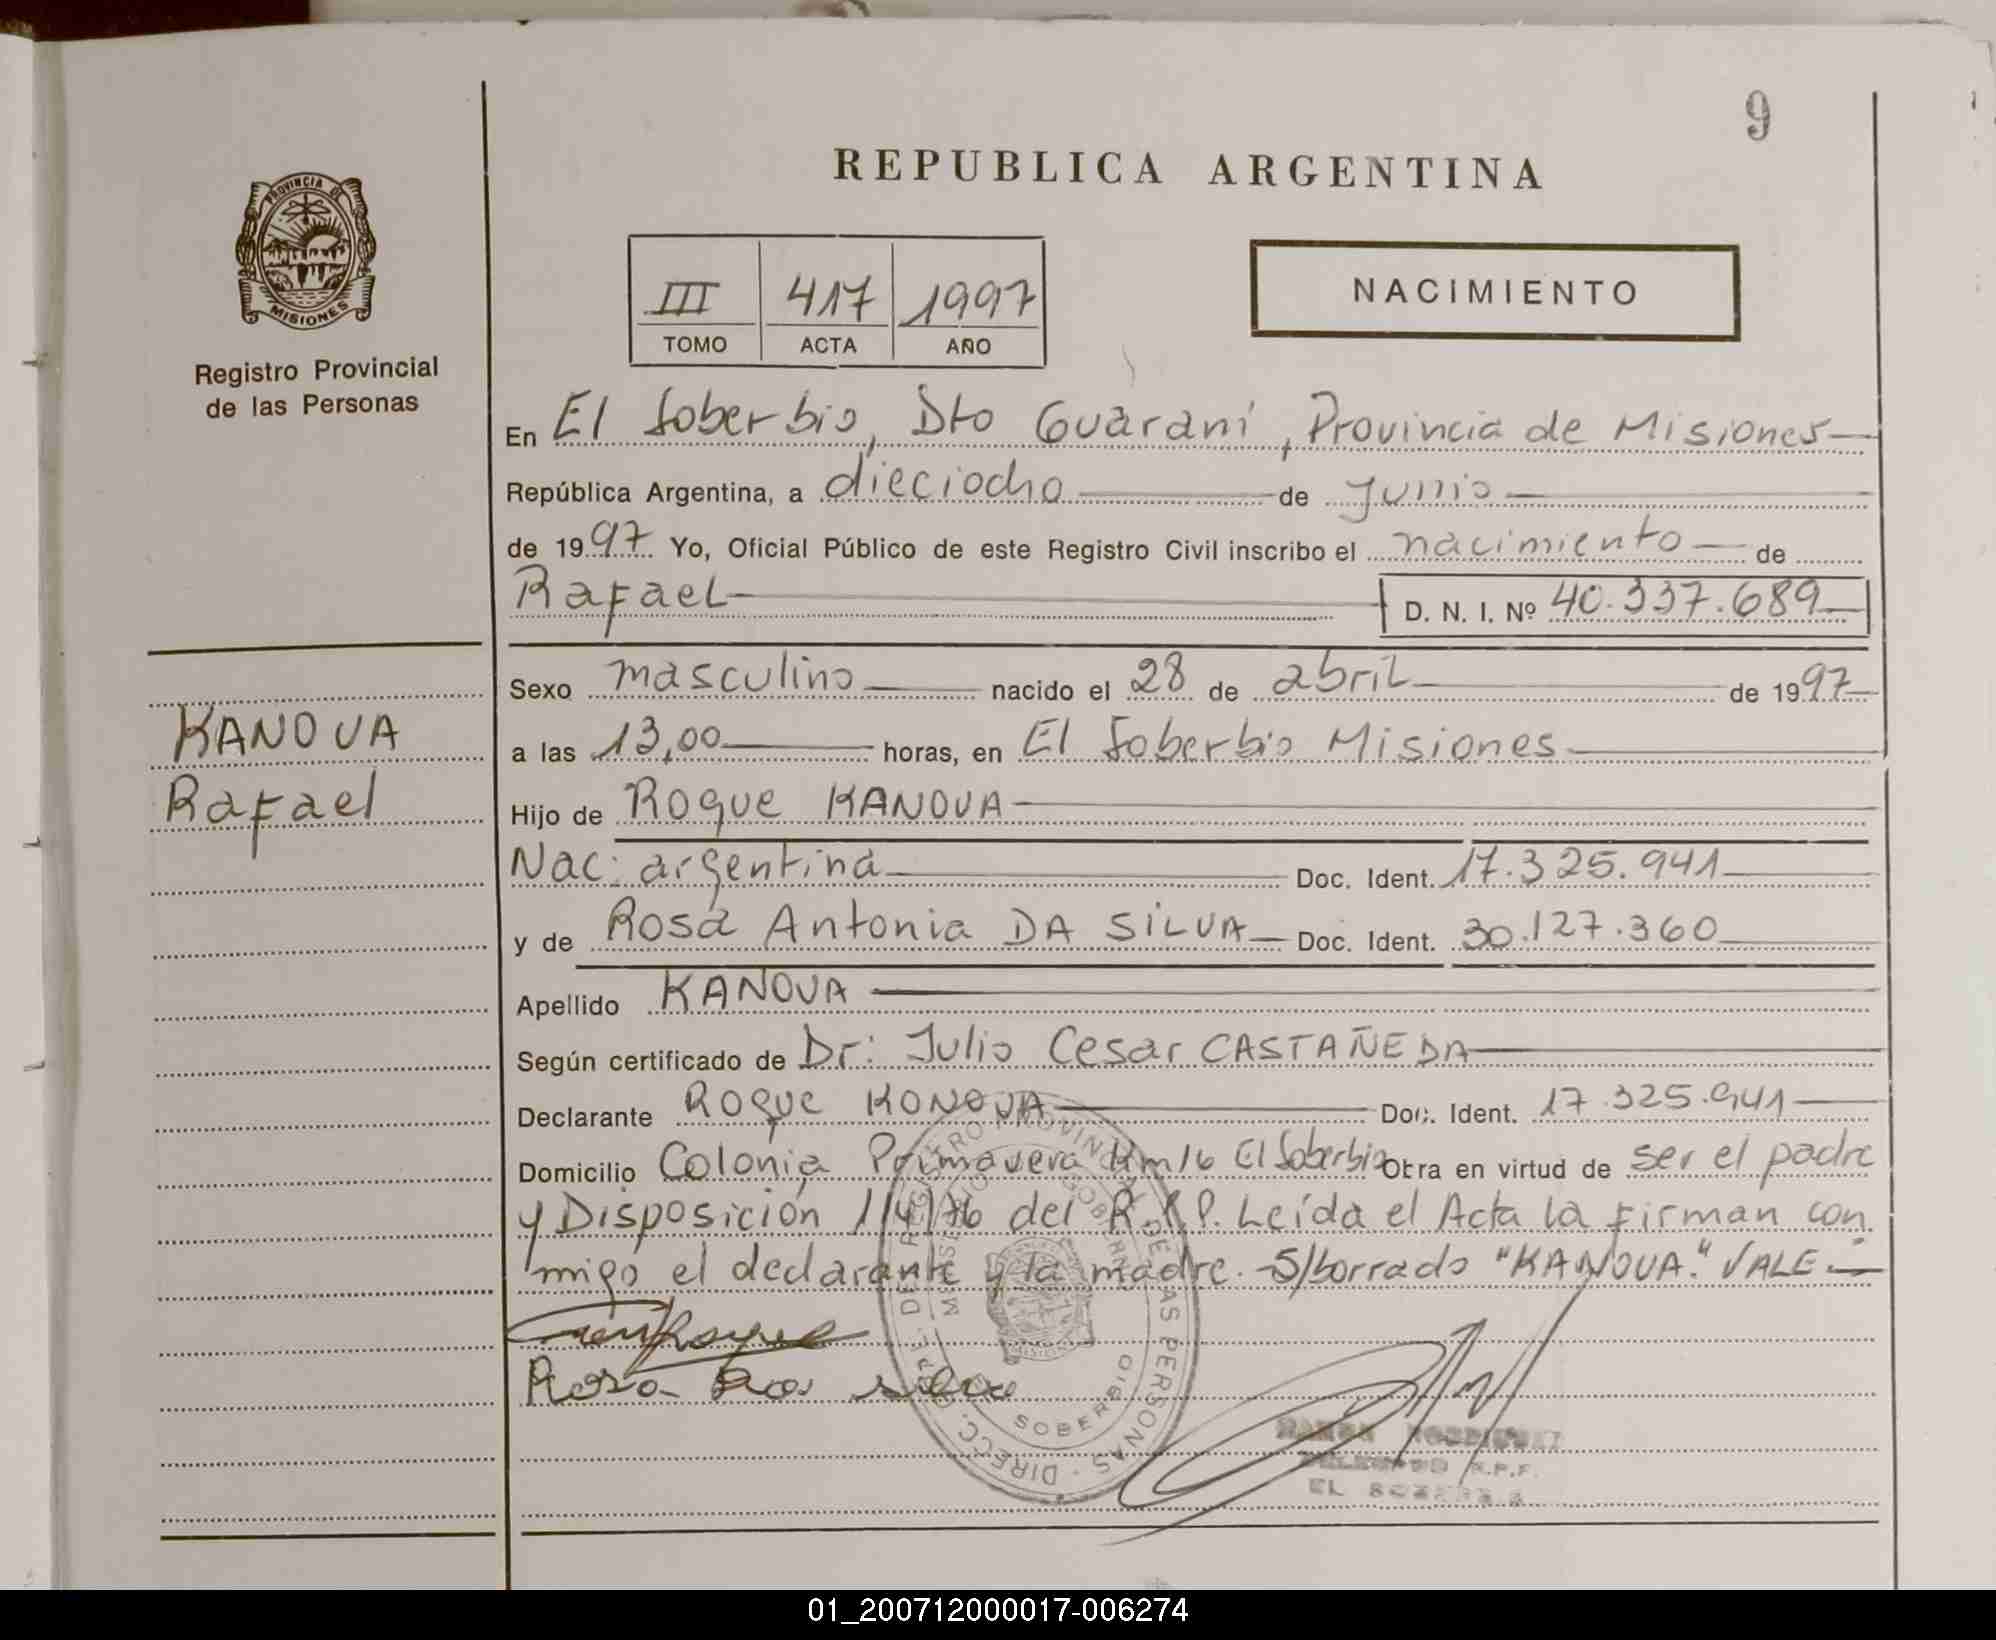 9
REPUBLICA ARGENTINA
PROVINCIA DE
MISIONES
Registro Provincial
de las Personas
III 417 1997
TOMO ACTA AÑO
NACIMIENTO
En El Soberbio, Dto Guaraní, Provincia de Misiones
República Argentina, a dieciocho de Junio
de 1997 Yo, Oficial Público de este Registro Civil inscribo el nacimiento de
Rafael D. N. I. Nº 40.337.689
KANOVA
Rafael
Sexo masculino nacido el 28 de abril de 1997
a las 13,00 horas, en El Soberbio Misiones
Hijo de Roque KANOVA
Nac: argentina Doc. Ident. 17.325.941
y de Rosa Antonia DA SILVA Doc. Ident. 30.127.360
Apellido KANOVA
Según certificado de Dr: Julio Cesar CASTAÑEDA
Declarante Roque KONOVA Doc. Ident. 17.325.941
Domicilio Colonia Primavera Km 16 El Soberbio Obra en virtud de ser el padre
y Disposición 1/4/76 del R.P.P. Leída el Acta la firman con
migo el declarante y la madre. S/borrado "KANOVA." VALE
Rosa Da Silva
SOBERBIO
EL SOBERBIO
01_200712000017-006274